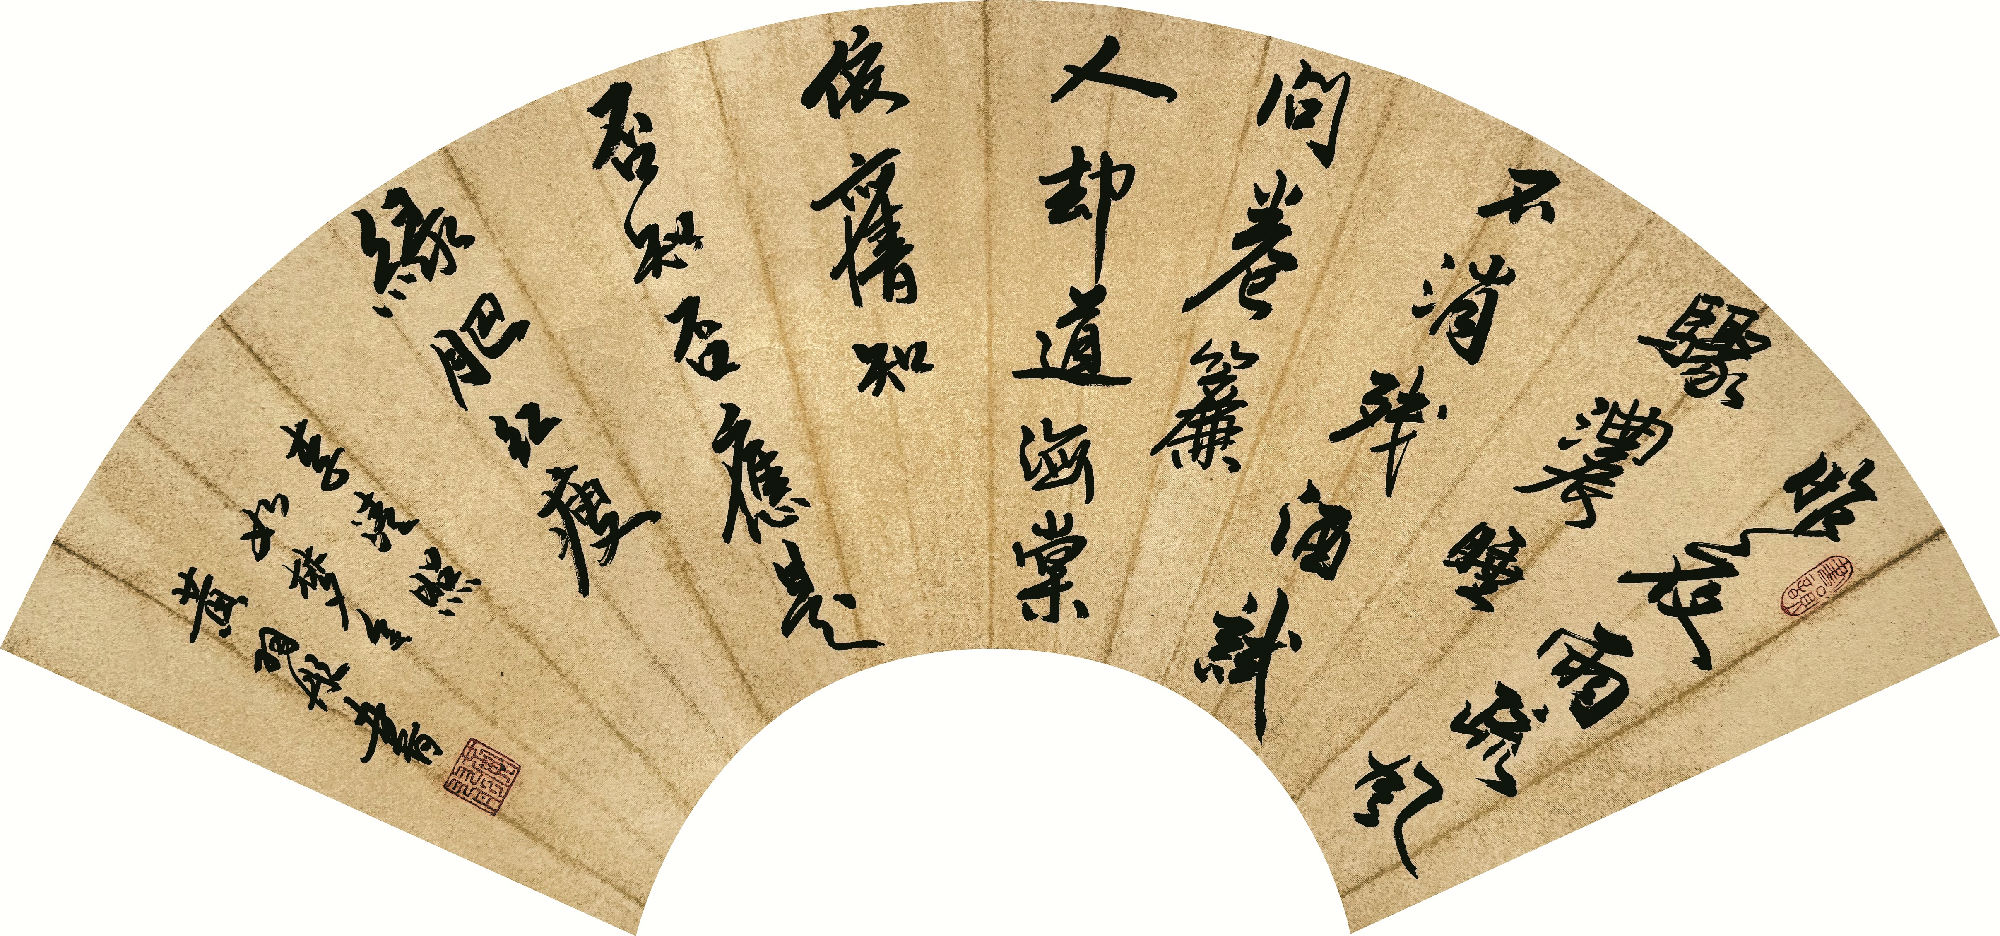 昨夜雨疏風
驟濃睡
不消殘酒試
問卷簾
人却道海棠
依舊知
否知否應是
緑肥紅瘦
李清照
如夢令
黄書